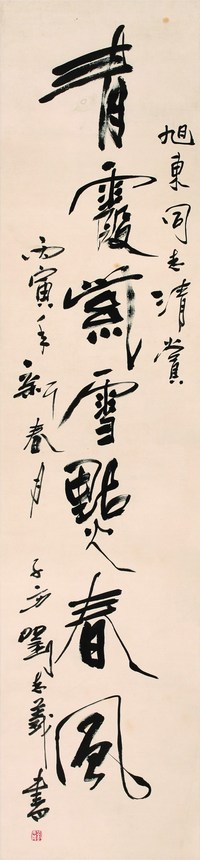 旭東同志清賞
青霞紫雪點春風
丙寅年新春月 劉志義書